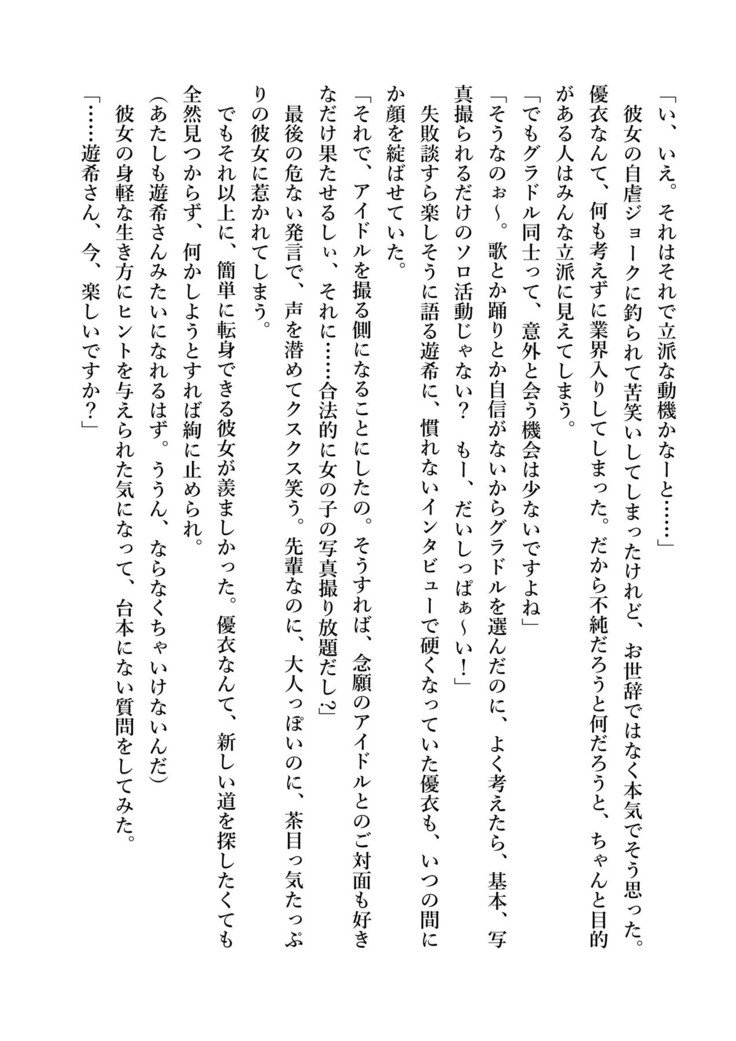 「い、いえ。それはそれで立派な動機かなーと……」
　彼女の自虐ジョークに釣られて苦笑いしてしまったけれど、お世辞ではなく本気でそう思った。
優衣なんて、何も考えずに業界入りしてしまった。だから不純だろうと何だろうと、ちゃんと目的
がある人はみんな立派に見えてしまう。
「でもグラドル同士って、意外と会う機会は少ないですよね」
「そうなのぉ〜。歌とか踊りとか自信がないからグラドルを選んだのに、よく考えたら、基本、写
真撮られるだけのソロ活動じゃない？　もー、だいしっぱぁ〜い！」
　失敗談すら楽しそうに語る遊希に、慣れないインタビューで硬くなっていた優衣も、いつの間に
か顔を綻ばせていた。
「それで、アイドルを撮る側になることにしたの。そうすれば、念願のアイドルとのご対面も好き
なだけ果たせるしぃ、それに……合法的に女の子の写真撮り放題だし？」
　最後の危ない発言で、声を潜めてクスクス笑う。先輩なのに、大人っぽいのに、茶目っ気たっぷ
りの彼女に惹かれてしまう。
　でもそれ以上に、簡単に転身できる彼女が羨ましかった。優衣なんて、新しい道を探したくても
全然見つからず、何かしようとすれば絢に止められ。
（あたしも遊希さんみたいになれるはず。ううん、ならなくちゃいけないんだ）
　彼女の身軽な生き方にヒントを与えられた気になって、台本にない質問をしてみた。
「……遊希さん、今、楽しいですか？」